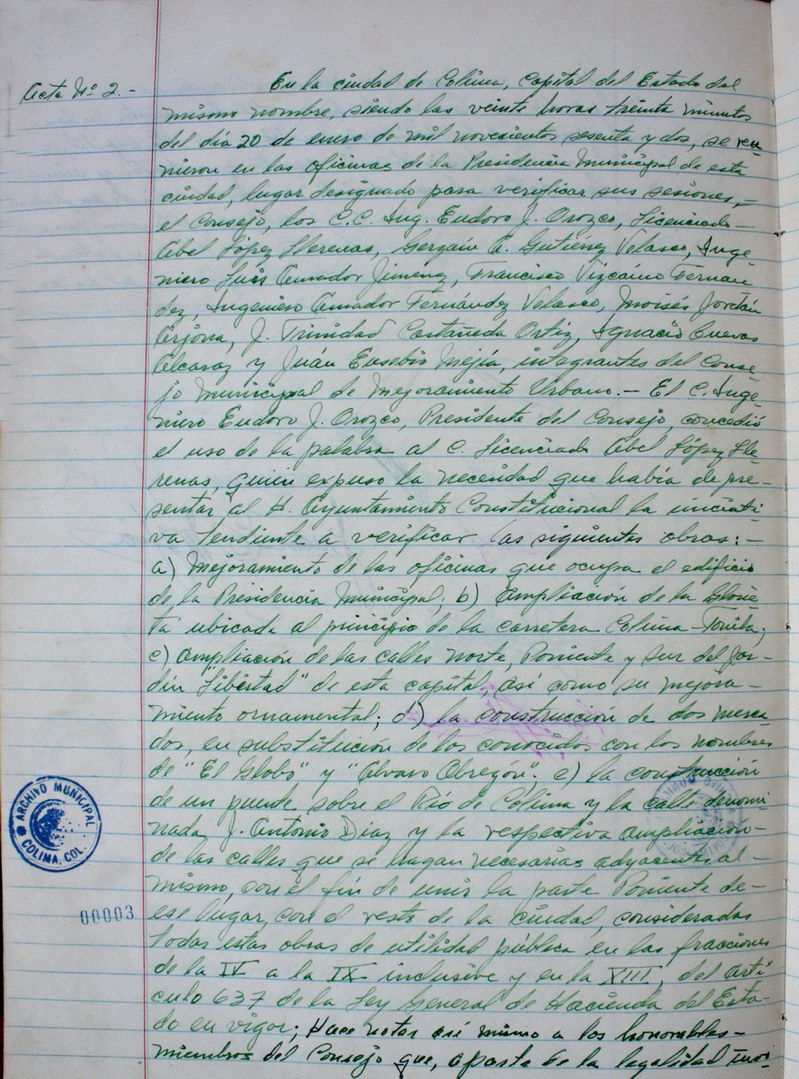 Acta Nº 2.-
En la ciudad de Colima, Capital del Estado del
mismo nombre, siendo las veinte horas treinta minutos
del día 20 de enero de mil novecientos sesenta y dos, se reu
nieron en las oficinas de la Presidencia Municipal de esta
ciudad, lugar designado para verificar sus sesiones,-
el Consejo, los C.C. Ing. Eudoro J. Orozco, Licenciado-
Abel López Llerenas, Gerzain A. Gutiérrez Velasco, Inge-
niero Luis Amador Jimenez, Francisco Vizcaíno Fernan
dez, Ingeniero Amador Fernández Velasco, Moisés Jordán
Arjona, J. Trinidad Castañeda Ortiz, Ignacio Cuevas
Alcaraz y Juán Eusebio Mejía, integrantes del Conse-
jo Municipal de Mejoramiento Urbano.- El C. Inge-
niero Eudoro J. Orozco, Presidente del Consejo concedió
el uso de la palabra al C. Licenciado Abel López Lle-
renas, quien expuso la necesidad que había de pre-
sentar al H. Ayuntamiento Constitucional la iniciati-
va tendiente a verificar las siguientes obras:-
a) Mejoramiento de las oficinas que ocupa el edificio
de la Presidencia Municipal; b) Ampliación de la Glorie-
ta ubicada al principio de la carretera Colima-Tonila;
c) ampliación de las calles norte, Poniente y sur del Jar-
dín "Libertad" de esta capital, así como su mejora-
miento ornamental; d) la construcción de dos merca
dos, en substitución de los conocidos con los nombres
de "El Globo" y "Alvaro Obregón"; e) la construcción
de un puente sobre el Río de Colima y la calle denomi
nada J. Antonio Díaz y la respectiva ampliación-
de las calles que se hagan necesarias adyacentes al-
mismo, con el fin de unir la parte Poniente de-
ese lugar, con el resto de la ciudad, consideradas
todas estas obras de utilidad pública en las fracciones
de la IV a la IX inclusive y en la XIII, del Artí-
culo 637 de la Ley General de Hacienda del Esta-
do en vigor; Hace notar así mismo a los honorables-
miembros del Consejo que, aparte de la legalidad
ARCHIVO MUNICIPAL
COLIMA, COL.
00003